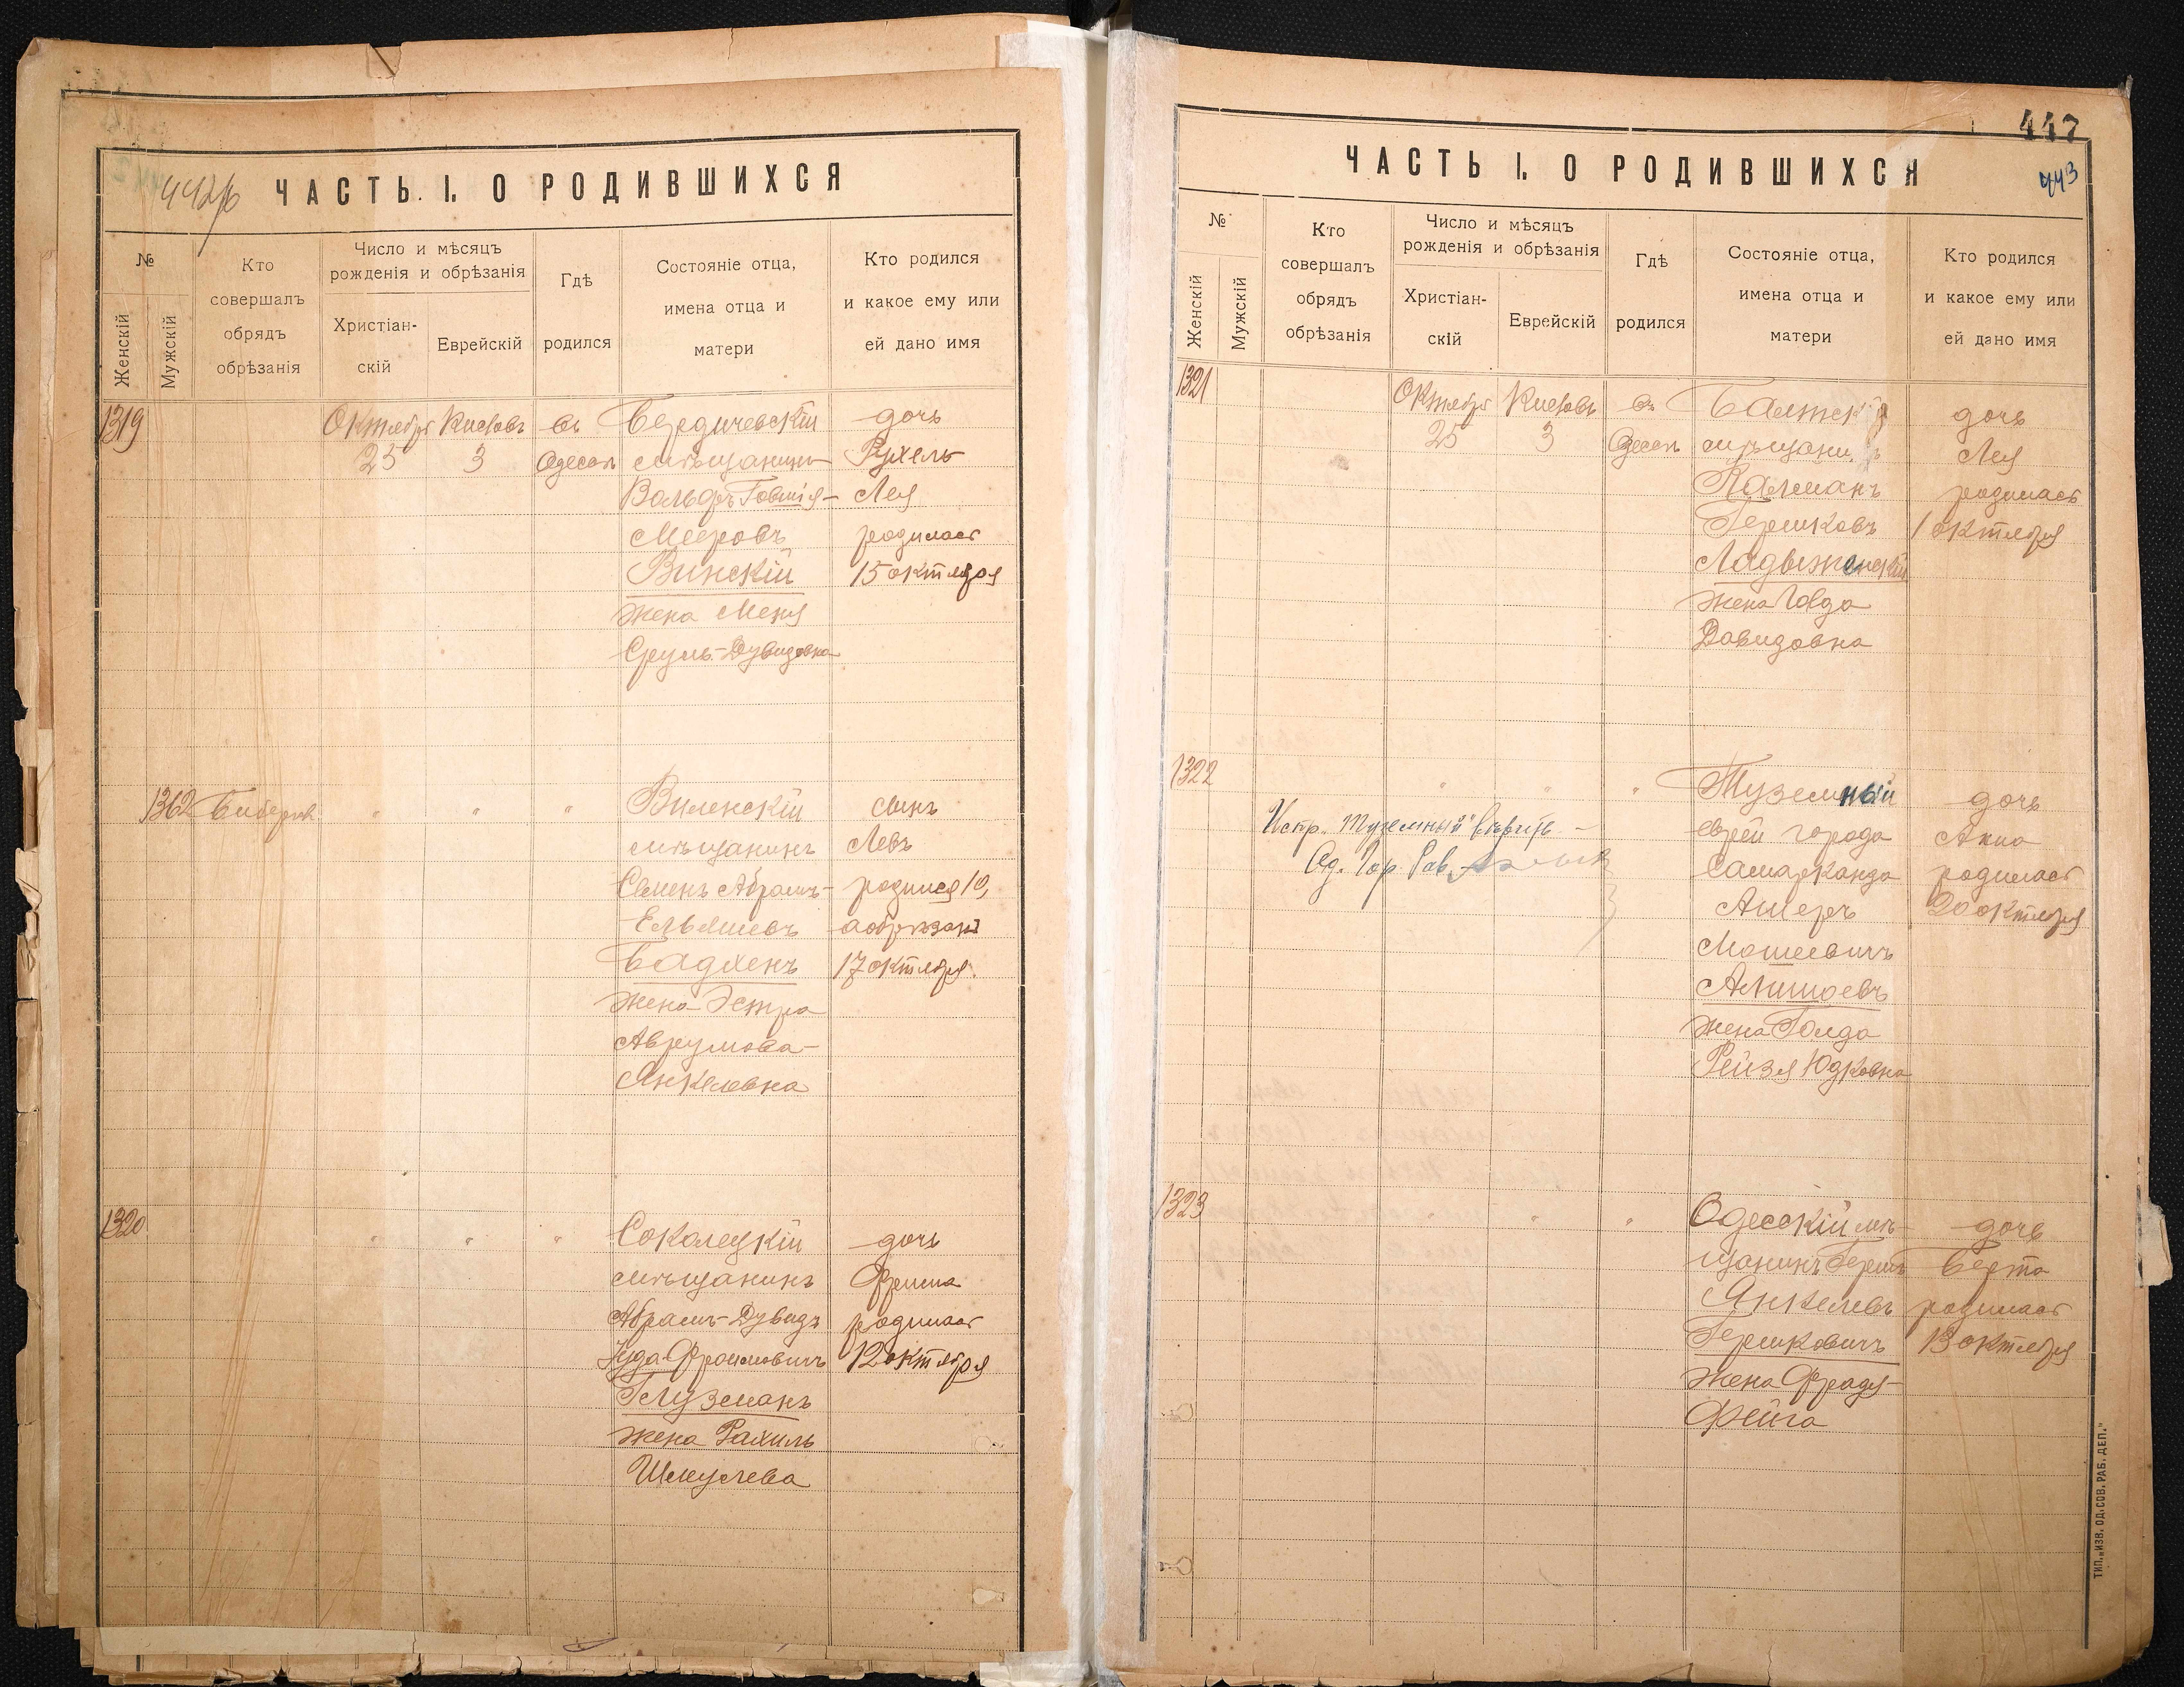 442б
ЧАСТЬ I. О РОДИВШИХСЯ
№
Женскій
Мужскій
Кто
совершалъ
обрядъ
обрѣзанія
Число и мѣсяцъ
рожденія и обрѣзанія
Христіан-
скій
Еврейскій
Гдѣ
родился
Состояніе отца,
имена отца и
матери
Кто родился
и какое ему или
ей дано имя
1319
Октября Кислевъ въ Бердичевскій дочь
25 3 Одессѣ мѣщанинъ Рухель-
Вольфъ Говшія- Лея
Мееровъ родилась
Винскій 15 октября
жена Меня
Сруль-Дувидовна
1362 " " " Виленскій сынъ
мѣщанинъ Левъ
Семенъ Абрамъ- родился 10,
Ельяшевъ а обрѣзанъ
Бадхенъ 17 октября.
жена Эстра
Аврумова-
Янкелевна
1320 " " " Соколецкій дочь
мѣщанинъ Фрима
Абрамъ-Дувидъ родилась
Іуда Фроимовичъ 12 октября
Глузманъ
жена Рахиль
Шмулева
447
443
ЧАСТЬ I. О РОДИВШИХСЯ
№
Женскій
Мужскій
Кто
совершалъ
обрядъ
обрѣзанія
Число и мѣсяцъ
рожденія и обрѣзанія
Христіан-
скій
Еврейскій
Гдѣ
родился
Состояніе отца,
имена отца и
матери
Кто родился
и какое ему или
ей дано имя
1321
Октября Кислевъ въ Балтскій дочь
25 3 Одессѣ мѣщанинъ Лея
Калманъ родилась
Гершковъ 1 октября
Ладыженскій
жена Голда
Давидовна
1322 " " " Туземный дочь
Испр. "Туземный" вѣрить еврей города Анна
Од. Гор. Рав. Самарканда родилась
Ашеръ 20 октября
Мошеевичъ
Аминоевъ
жена Голда
Рейзя Юдковна
1323 " " Одесскій мѣ- дочь
щанинъ Гершъ Берта
Янкелевъ родилась
Гершковичъ 13 октября
жена Фрадя-
Фейга
ТИП. „ИЗВ. ОД. СОВ. РАБ. ДЕП."